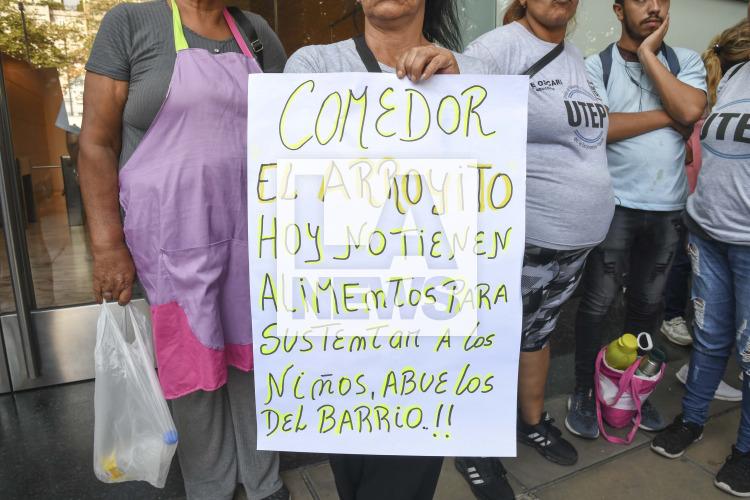 COMEDOR
EL ARROYITO
HOY NO TIENEN
ALIMENTOS PARA
SUSTENTAR A LOS
NIÑOS, ABUELOS
DEL BARRIO..!!
LA
NEWS
UTEP
UTEP